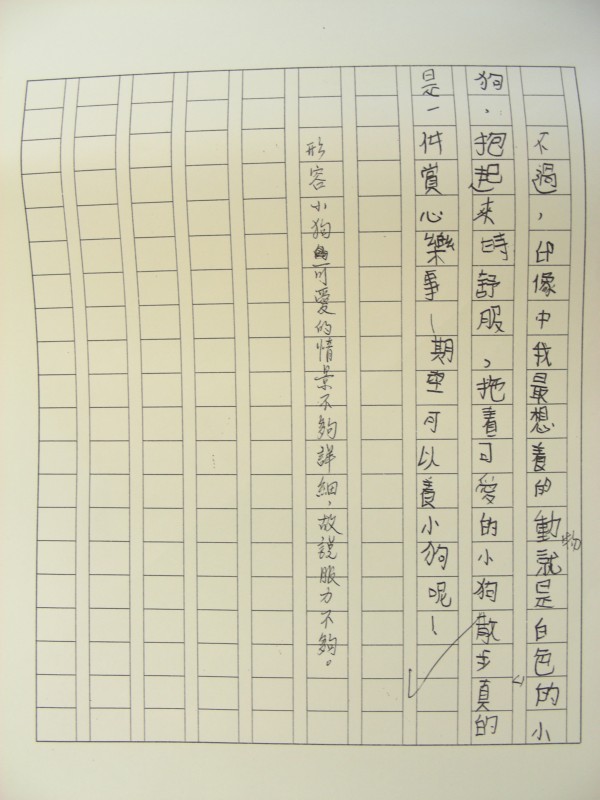 不過，印像中我最想養的動物就是白色的小
狗，抱起來時舒服，拖著可愛的小狗散步真的
是一件賞心樂事！期望可以養小狗呢！
形容小狗可愛的情景不夠詳細，故說服力不夠。